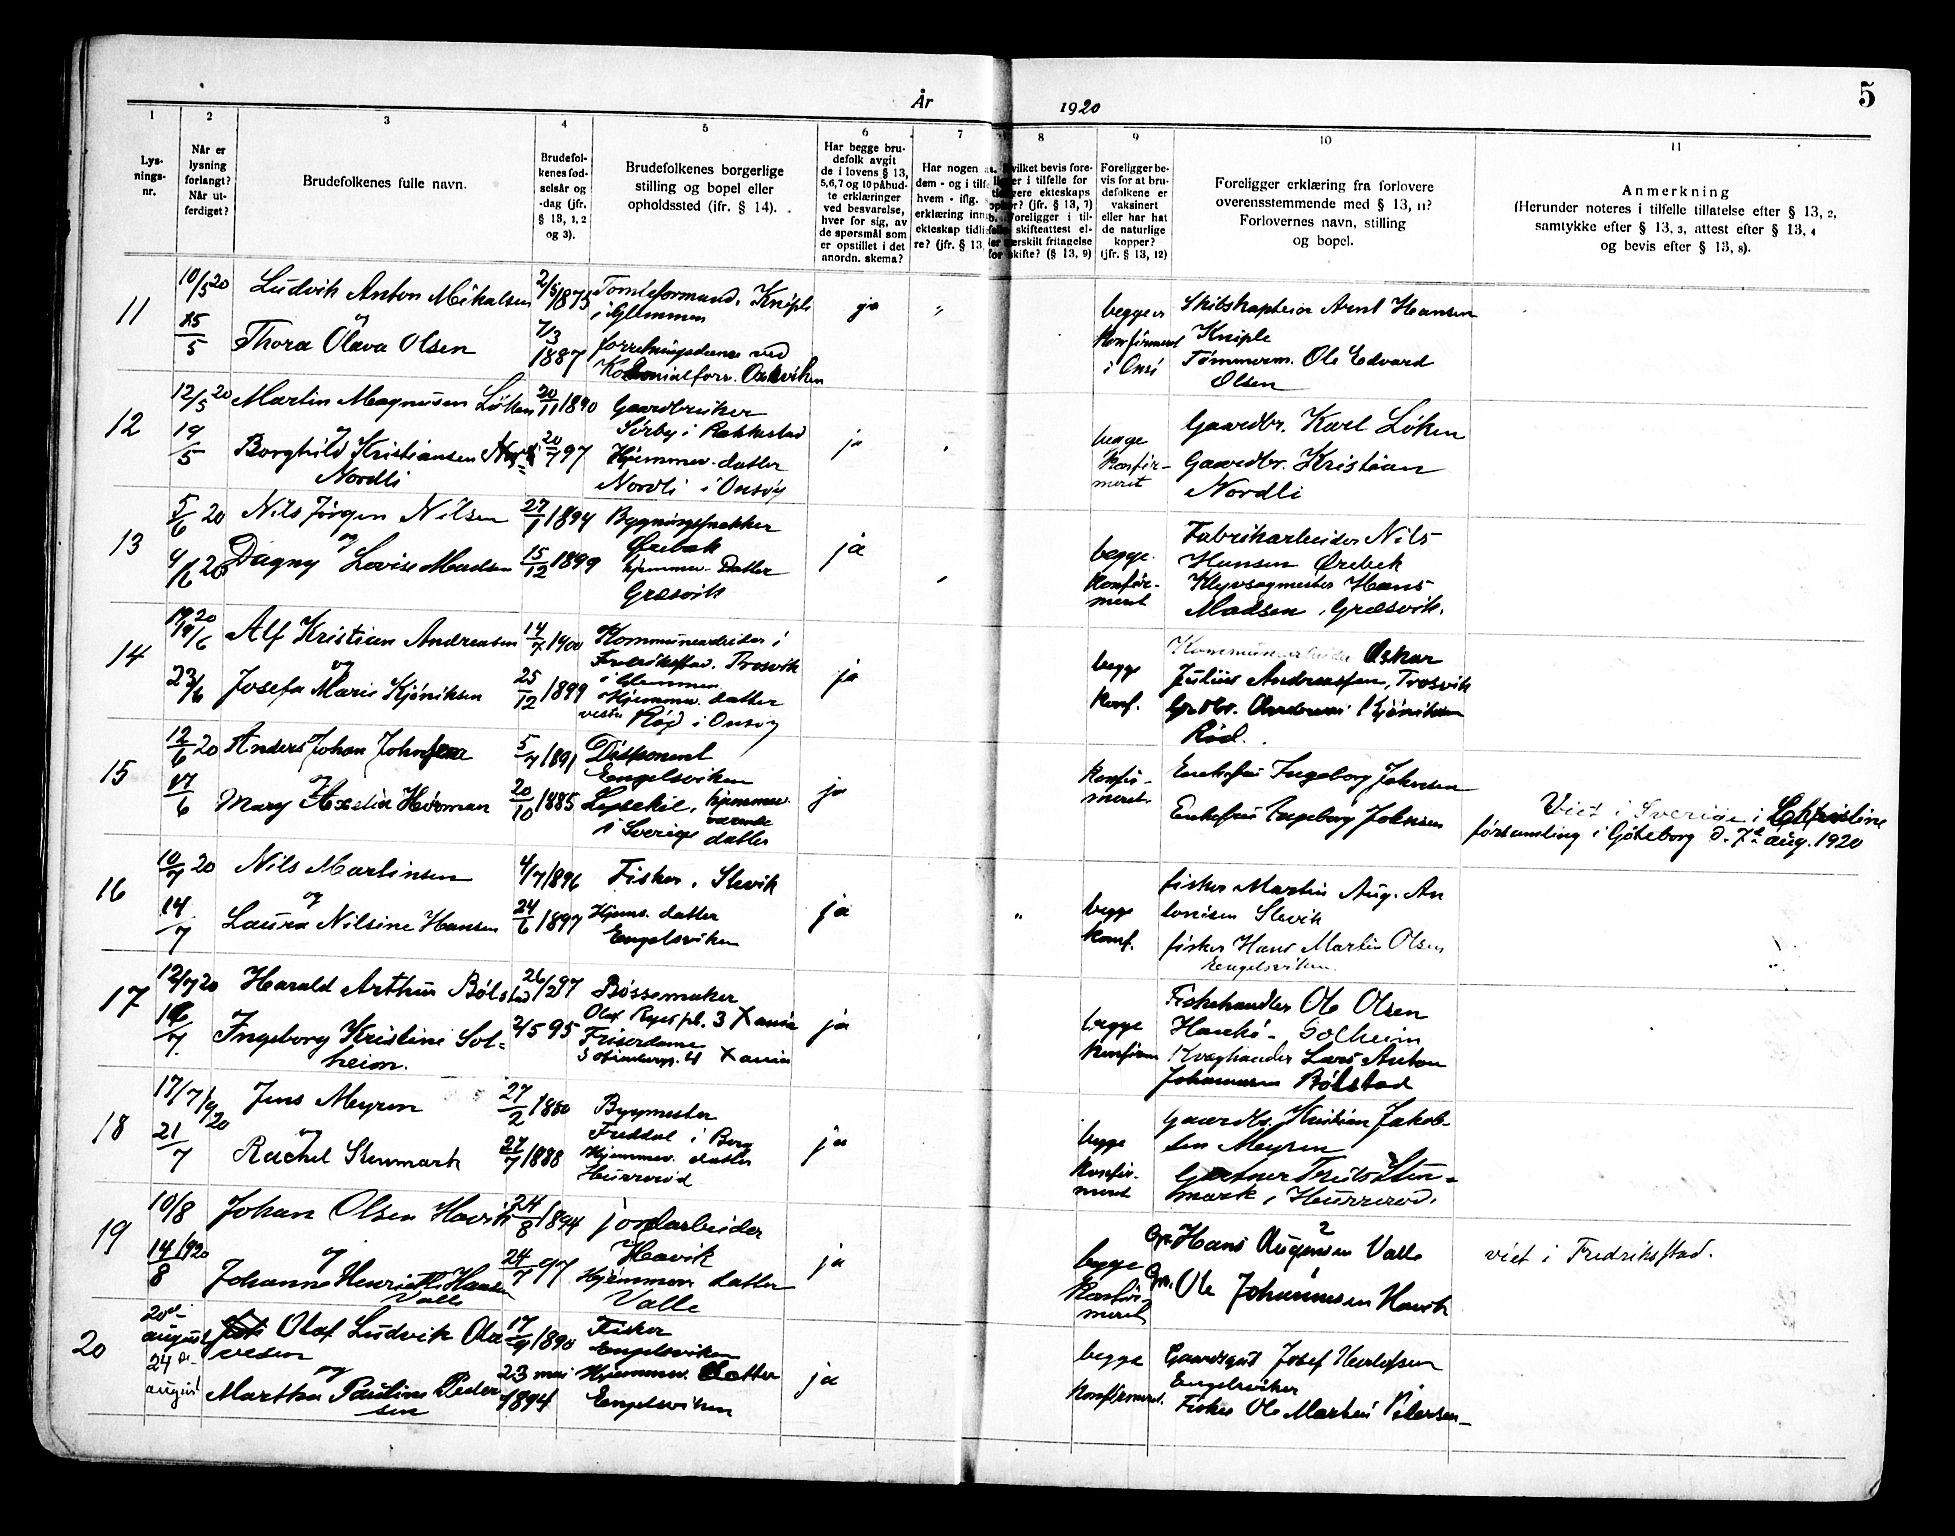 5
År 1920
1 2 3 4 5 6 7 8 9 10 11
Lys-
nings-
nr.
Når er
lysning
forlangt?
Når ut-
ferdiget?
Brudefolkenes fulle navn.
Brudefol-
kenes fød-
selsår og
-dag (jfr.
§ 13, 1, 2
og 3).
Brudefolkenes borgerlige
stilling og bopel eller
opholdssted (ifr. § 14).
Har begge bru-
defolk avgit
de i lovens § 13,
5,6,7 og 10 påbud-
te erklæringer
ved besvarelse,
hver for sig, av
de spørsmål som
er opstillet i det
anordn. skema?
Har nogen a
dem - og i tilf
hvem - iflg.
erklæring inn
ekteskap tidli
re? (jfr. § 13,
hvilket bevis fore-
ligger i tilfelle for
tidligere ekteskaps
ophør? (jfr. § 13, 7)
b. Foreligger i til-
felle skifteattest el-
ler særskilt fritagelse
for skifte? (§ 13, 9)
Foreligger be-
vis for at bru-
defolkene er
vaksinert
eller har hat
de naturlige
kopper?
(jfr. § 13, 12)
Foreligger erklæring fra forlovere
overensstemmende med § 13, 11?
Forlovernes navn, stilling
og bopel.
Anmerkning
(Herunder noteres i tilfelle tillatelse efter § 13, 2,
samtykke efter § 13, 3, attest efter § 13, 4
og bevis efter § 13, 8).
11
10/5 20
15/5
Ludvik Anton Mikalsen
og
Thora Olava Olsen
2/5 1875
7/3
1887
Tomteformand, Kniple
i Glemmen
forretningsdame ved
Kolonialforr.
ja
"
begge er
Konfirmert
i Onsö
Skibskaptein Arnt Hansen
Kniple
Tømmerm. Ole Edvard
Olsen
12
12/5 20
19/5
Martin Magnusen Löken
og
Borghild Kristiansen
Nordli
20/11 1890
20/7 97
Gaardbruker
Sörby i Rakkestad
Hjemmev. datter
Nordli i Onsöy
ja
begge
Konfir-
meret
Gaardbr. Karl Löken
Gaardbr. Kristian
Nordli
13
5/6 20
Nils Jörgen Nilsen
og
Dagny Lovise Madsen
27/1 1894
15/12 1899
Bygningssnekker
Ørebæk
hjemmev. Datter
Græsvik
ja
begge
Konfir-
meret
Fabrikarbeider Nils
Hansen Ørebek
Klyvsagmester Hans
Madsen, Græsvik.
14
23/6
Alf Kristian Andreasen
og
Josefa Marie Kjöniksen
14/7 1900
25/12 1899
Kommunearbeider i
Fredrikstad. Trosvik
i Glemmen
Hjemmev. datter
vestre Röd i Onsöy
ja
begge
Konf.
Kommunearbeider Oskar
Julius Andreassen, Trosvik
Grdbr. Andreas Kjöniksen
Röd.
15
12/6 20
17/6
Anders Johan Johnsen
og
Mary Axelia Herman
5/7 1891
20/10 1885
Disponent
Engelsviken
Lysekil, hjemmev.
værende
i Sverige datter
ja
Konfir-
meret
Enkefru Ingeborg Johnsen
Enkefru Ingeborg Johnsen
Viet i Sverige i Christine
forsamling i Göteborg d. 7de aug. 1920
16
10/7 20
14/7
Nils Martinsen
og
Laura Nilsine Hansen
4/7 1896
24/6 1897
Fisker, Slevik
Hjems. datter
Engelsviken
ja
"
begge
Konf.
fisker Martin Aug. An
tonisen Slevik
fisker Hans Martin Olsen
Engelsviken.
17
12/7 20
16/7
Harald Arthur Bölstad
Ingeborg Kristine Sol-
heim.
26/12 97
2/5 95
Bössemaker
Olaf Ryes pl. 3 Xania
Friserdame
Xania
ja
begge
Konfirm
Fiskehandler Ole Olsen
Hankö - Solheim
Kvæghandler Lars Anton
Johannesen Bölstad
18
17/7 1920
21/7
Jens Meyren
og
Rachel Stenmark
27/2 1880
27/7 1888
Byggmester
Freddal i Berg
Hjemmev. datter
Hurrerød
ja
begge
Konfir-
meret
Gaardbr. Kristian Jakob-
sen Meyren
Gartner Truls Sten-
mark, Hurrerød.
19
10/8
14/8 1920
Johan Olsen Havik
og
Johanne Henriette Hansen
Valle
24/8 1894
24/7 97
jordarbeider
Havik
Hjemmev. datter
Valle
ja
begge
Konfir-
meret
Hans Augensen Valle
Ole Johannesen Havik
viet i Fredrikstad.
20
20de
august
24de
august
Olaf Ludvik Ola
vesen
og
Martha Pauline Peder
sen
17/9 1890
23 mai
1894
Fisker
Engelsviken
Hjemmev. Datter
Engelsviken
ja
begge
Konfirmeret.
Gaardsgut Josef Herlofsen
Engelsviken
Fisker Ole Martin Petersen